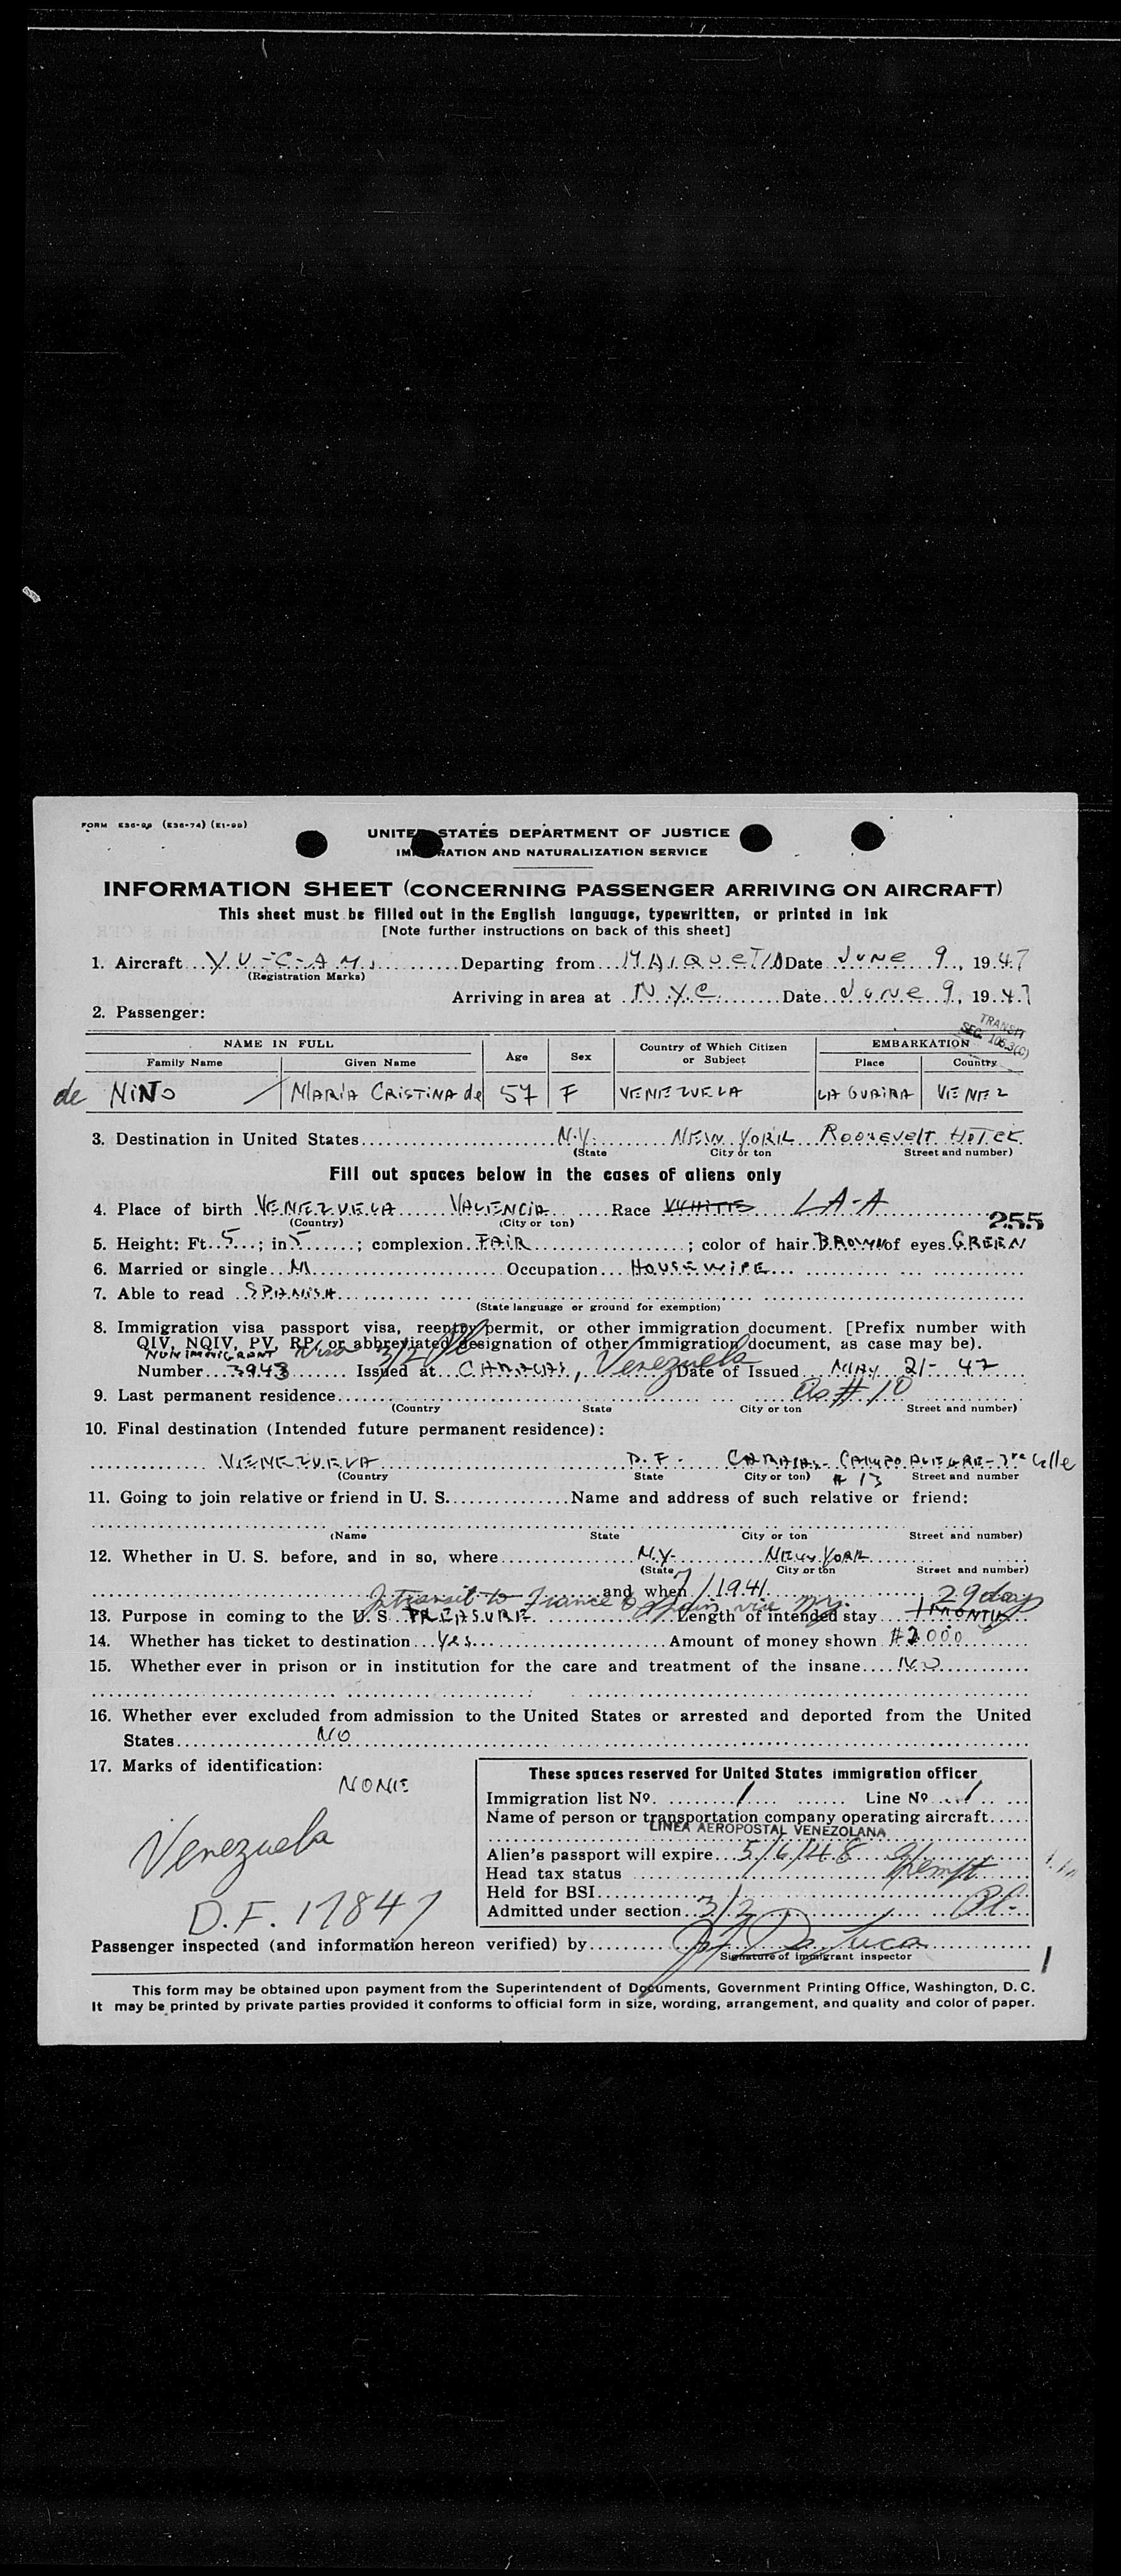 FORM E36-99 (E36-74) (E1-99)
UNITED STATES DEPARTMENT OF JUSTICE
IMMIGRATION AND NATURALIZATION SERVICE
INFORMATION SHEET (CONCERNING PASSENGER ARRIVING ON AIRCRAFT)
This sheet must be filled out in the English language, typewritten, or printed in ink
[Note further instructions on back of this sheet]
1. Aircraft Y.V.-C-A M. Departing from MAIQUETIA Date JUNE 9, 1947
(Registration Marks)
Arriving in area at N.Y.C. Date June 9, 1947
2. Passenger:
TRANSIT
SEC. 106.3(C)
NAME IN FULL Age Sex Country of Which Citizen or Subject EMBARKATION
Family Name Given Name Place Country
de NINO MARIA CRISTINA de 57 F VENEZUELA LA GUAIRA VENEZ
3. Destination in United States N.Y. NEW YORK ROOSEVELT HOTEL
(State City or ton Street and number)
Fill out spaces below in the cases of aliens only
4. Place of birth VENEZUELA VALENCIA Race WHITE LA-A
(Country) (City or ton)
255
5. Height: Ft. 5; in 5; complexion FAIR; color of hair BROWN of eyes GREEN
6. Married or single M Occupation HOUSEWIFE
7. Able to read SPANISH
(State language or ground for exemption)
8. Immigration visa passport visa, reentry permit, or other immigration document. [Prefix number with
QIV, NQIV, PV, RP, or abbreviated designation of other immigration document, as case may be).
NONIMMIGRANT Visa 3/2
Number 3943 Issued at CARACAS, Venezuela Date of Issued MAY 21- 47
9. Last permanent residence as # 10
(Country State City or ton Street and number)
10. Final destination (Intended future permanent residence):
VENEZUELA D.F. CARACAS- CAMPO ALEGRE- 3ra Calle
(Country State City or ton) # 13 Street and number
11. Going to join relative or friend in U. S. Name and address of such relative or friend:
(Name State City or ton Street and number)
12. Whether in U. S. before, and in so, where N.Y. NEW YORK
(State City or ton Street and number)
and when 1941
In transit to France & Spain 29 days
13. Purpose in coming to the U. S. PLEASURE Length of intended stay 1 MONTH
14. Whether has ticket to destination Yes Amount of money shown $2000
15. Whether ever in prison or in institution for the care and treatment of the insane NO
16. Whether ever excluded from admission to the United States or arrested and deported from the United
States NO
17. Marks of identification:
NONE
Venezuela
D.F. 17847
These spaces reserved for United States immigration officer
Immigration list No. 1 Line No 1
Name of person or transportation company operating aircraft
LINEA AEROPOSTAL VENEZOLANA
Alien's passport will expire 5/6/48
Head tax status Exempt
Held for BSI
Admitted under section 3/2
Passenger inspected (and information hereon verified) by
Signature of immigrant inspector
1
This form may be obtained upon payment from the Superintendent of Documents, Government Printing Office, Washington, D. C.
It may be printed by private parties provided it conforms to official form in size, wording, arrangement, and quality and color of paper.